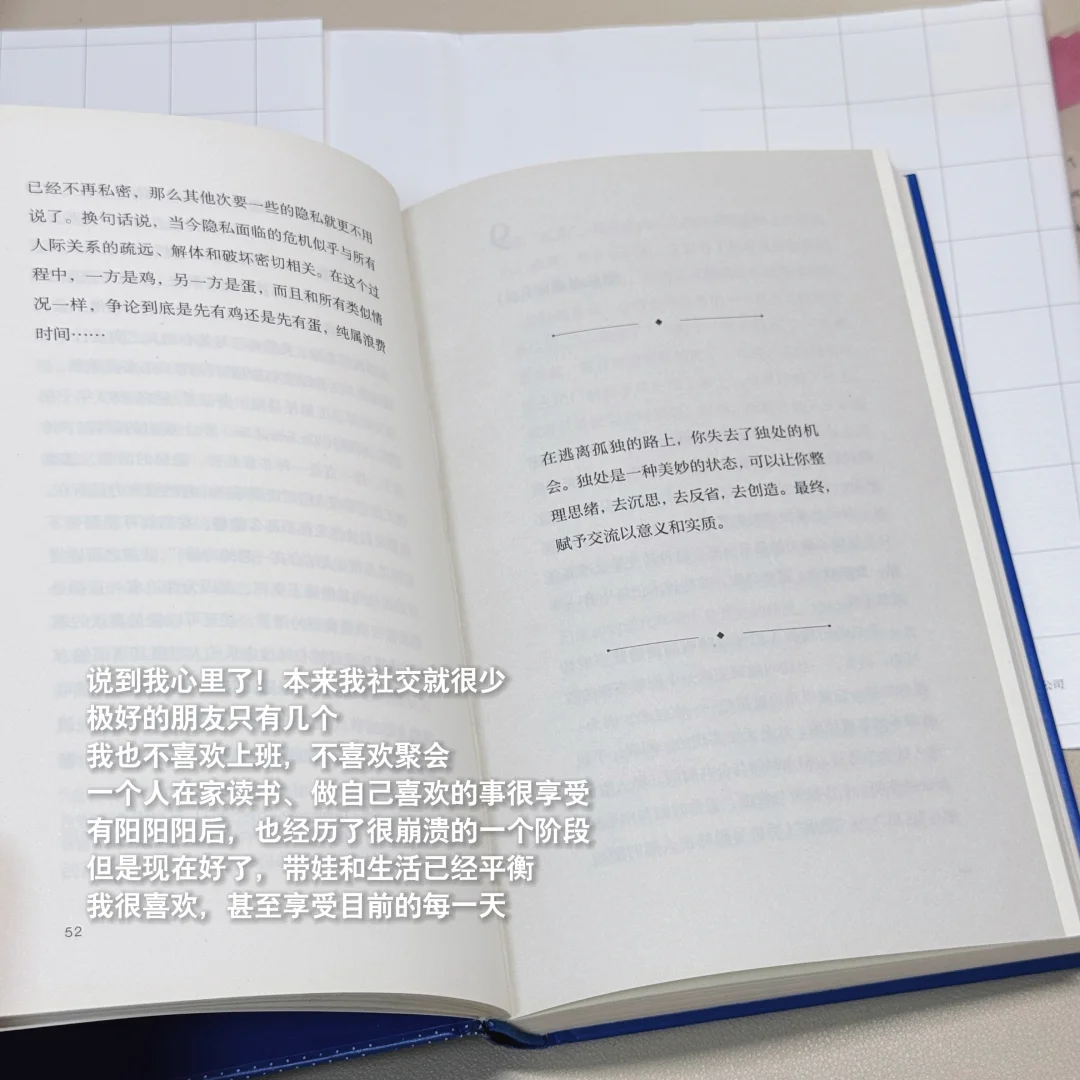 已经不再私密，那么其他次要一些的隐私就更不用
说了。换句话说，当今隐私面临的危机似乎与所有
人际关系的疏远、解体和破坏密切相关。在这个过
程中，一方是鸡，另一方是蛋，而且和所有类似情
况一样，争论到底是先有鸡还是先有蛋，纯属浪费
时间……
在逃离孤独的路上，你失去了独处的机
会。独处是一种美妙的状态，可以让你整
理思绪，去沉思，去反省，去创造。最终，
赋予交流以意义和实质。
公司
说到我心里了！本来我社交就很少
极好的朋友只有几个
我也不喜欢上班，不喜欢聚会
一个人在家读书、做自己喜欢的事很享受
有阳阳阳后，也经历了很崩溃的一个阶段
但是现在好了，带娃和生活已经平衡
我很喜欢，甚至享受目前的每一天
52